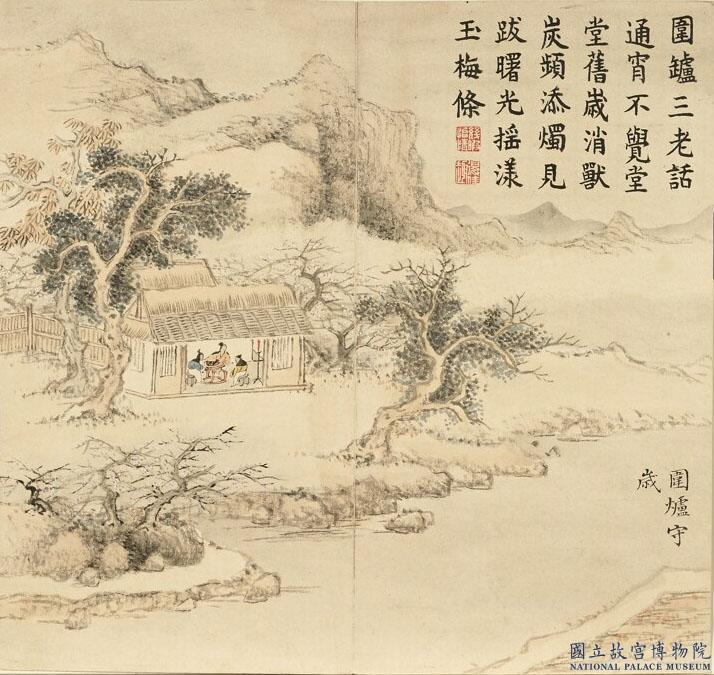 圍鑪三老話
通宵不覺堂
堂舊歲消獸
炭頻添燭見
跋曙光搖漾
玉梅條
圍爐守
歲
國立故宮博物院
NATIONAL PALACE MUSEUM